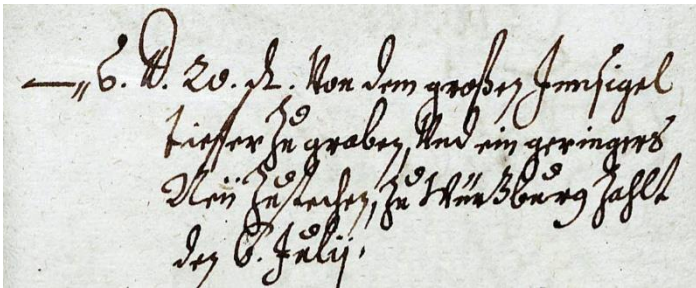 —„ 6. ₰. 20. ₰. Von dem großen Innsigel
tieffer Zu graben, Und ein geringers
Neü Zustechen, Zu Würtzburg Zahlt
den 6. Julij.